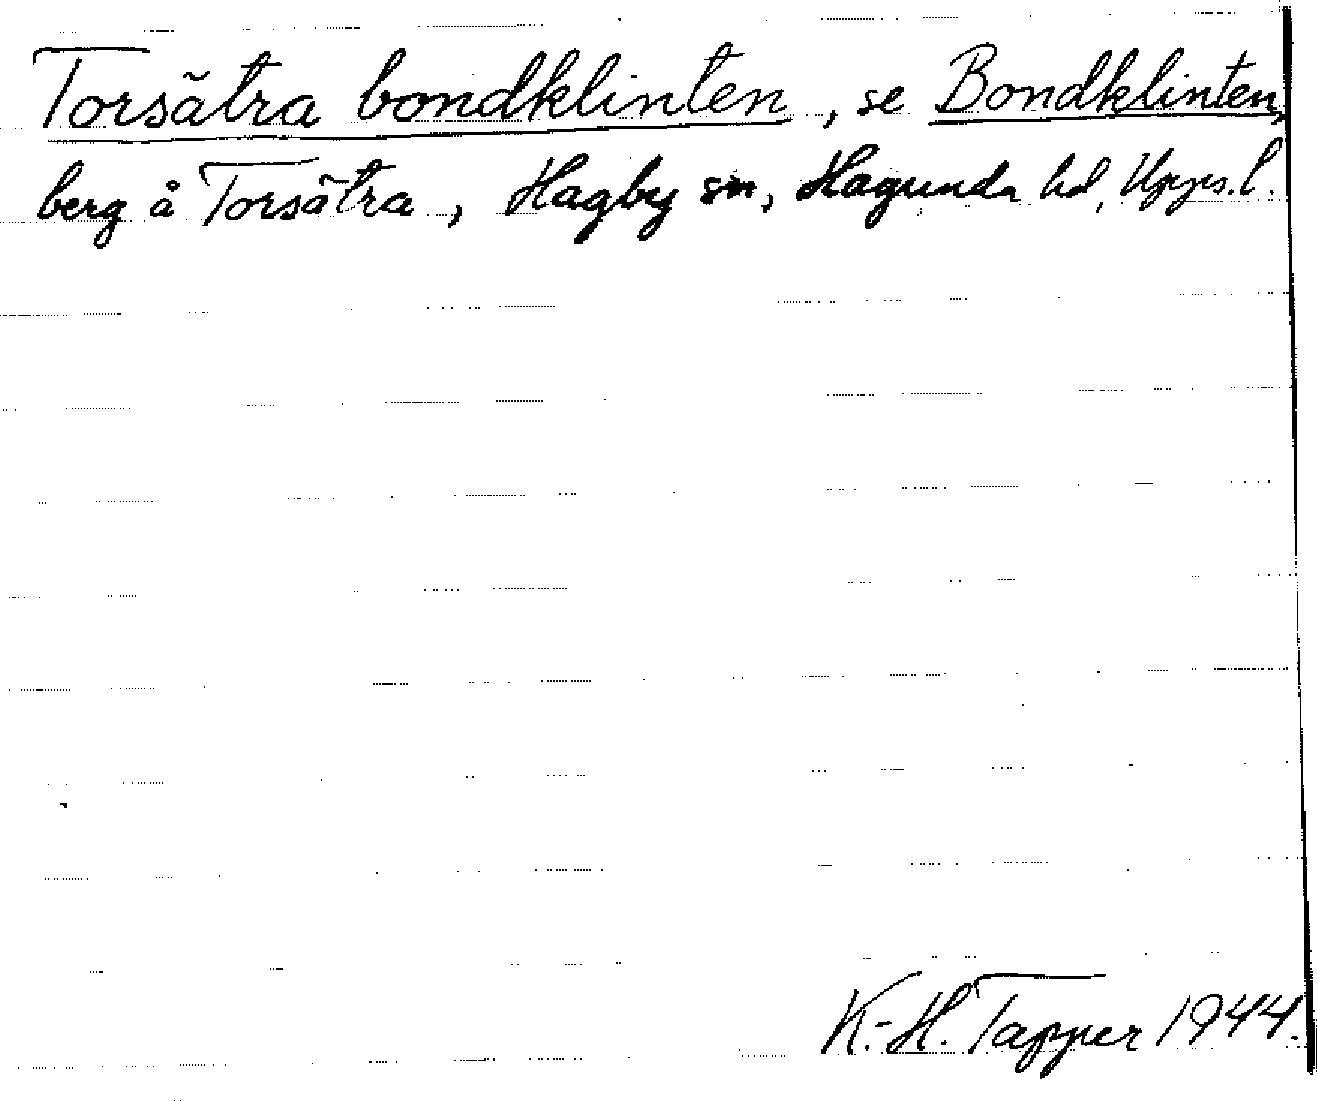 Torsätra bondklinten, se Bondklinten,
berg å Torsätra, Hagby sn, Hagunda hd, Upps. l.
K.-H. Tapper 1944.